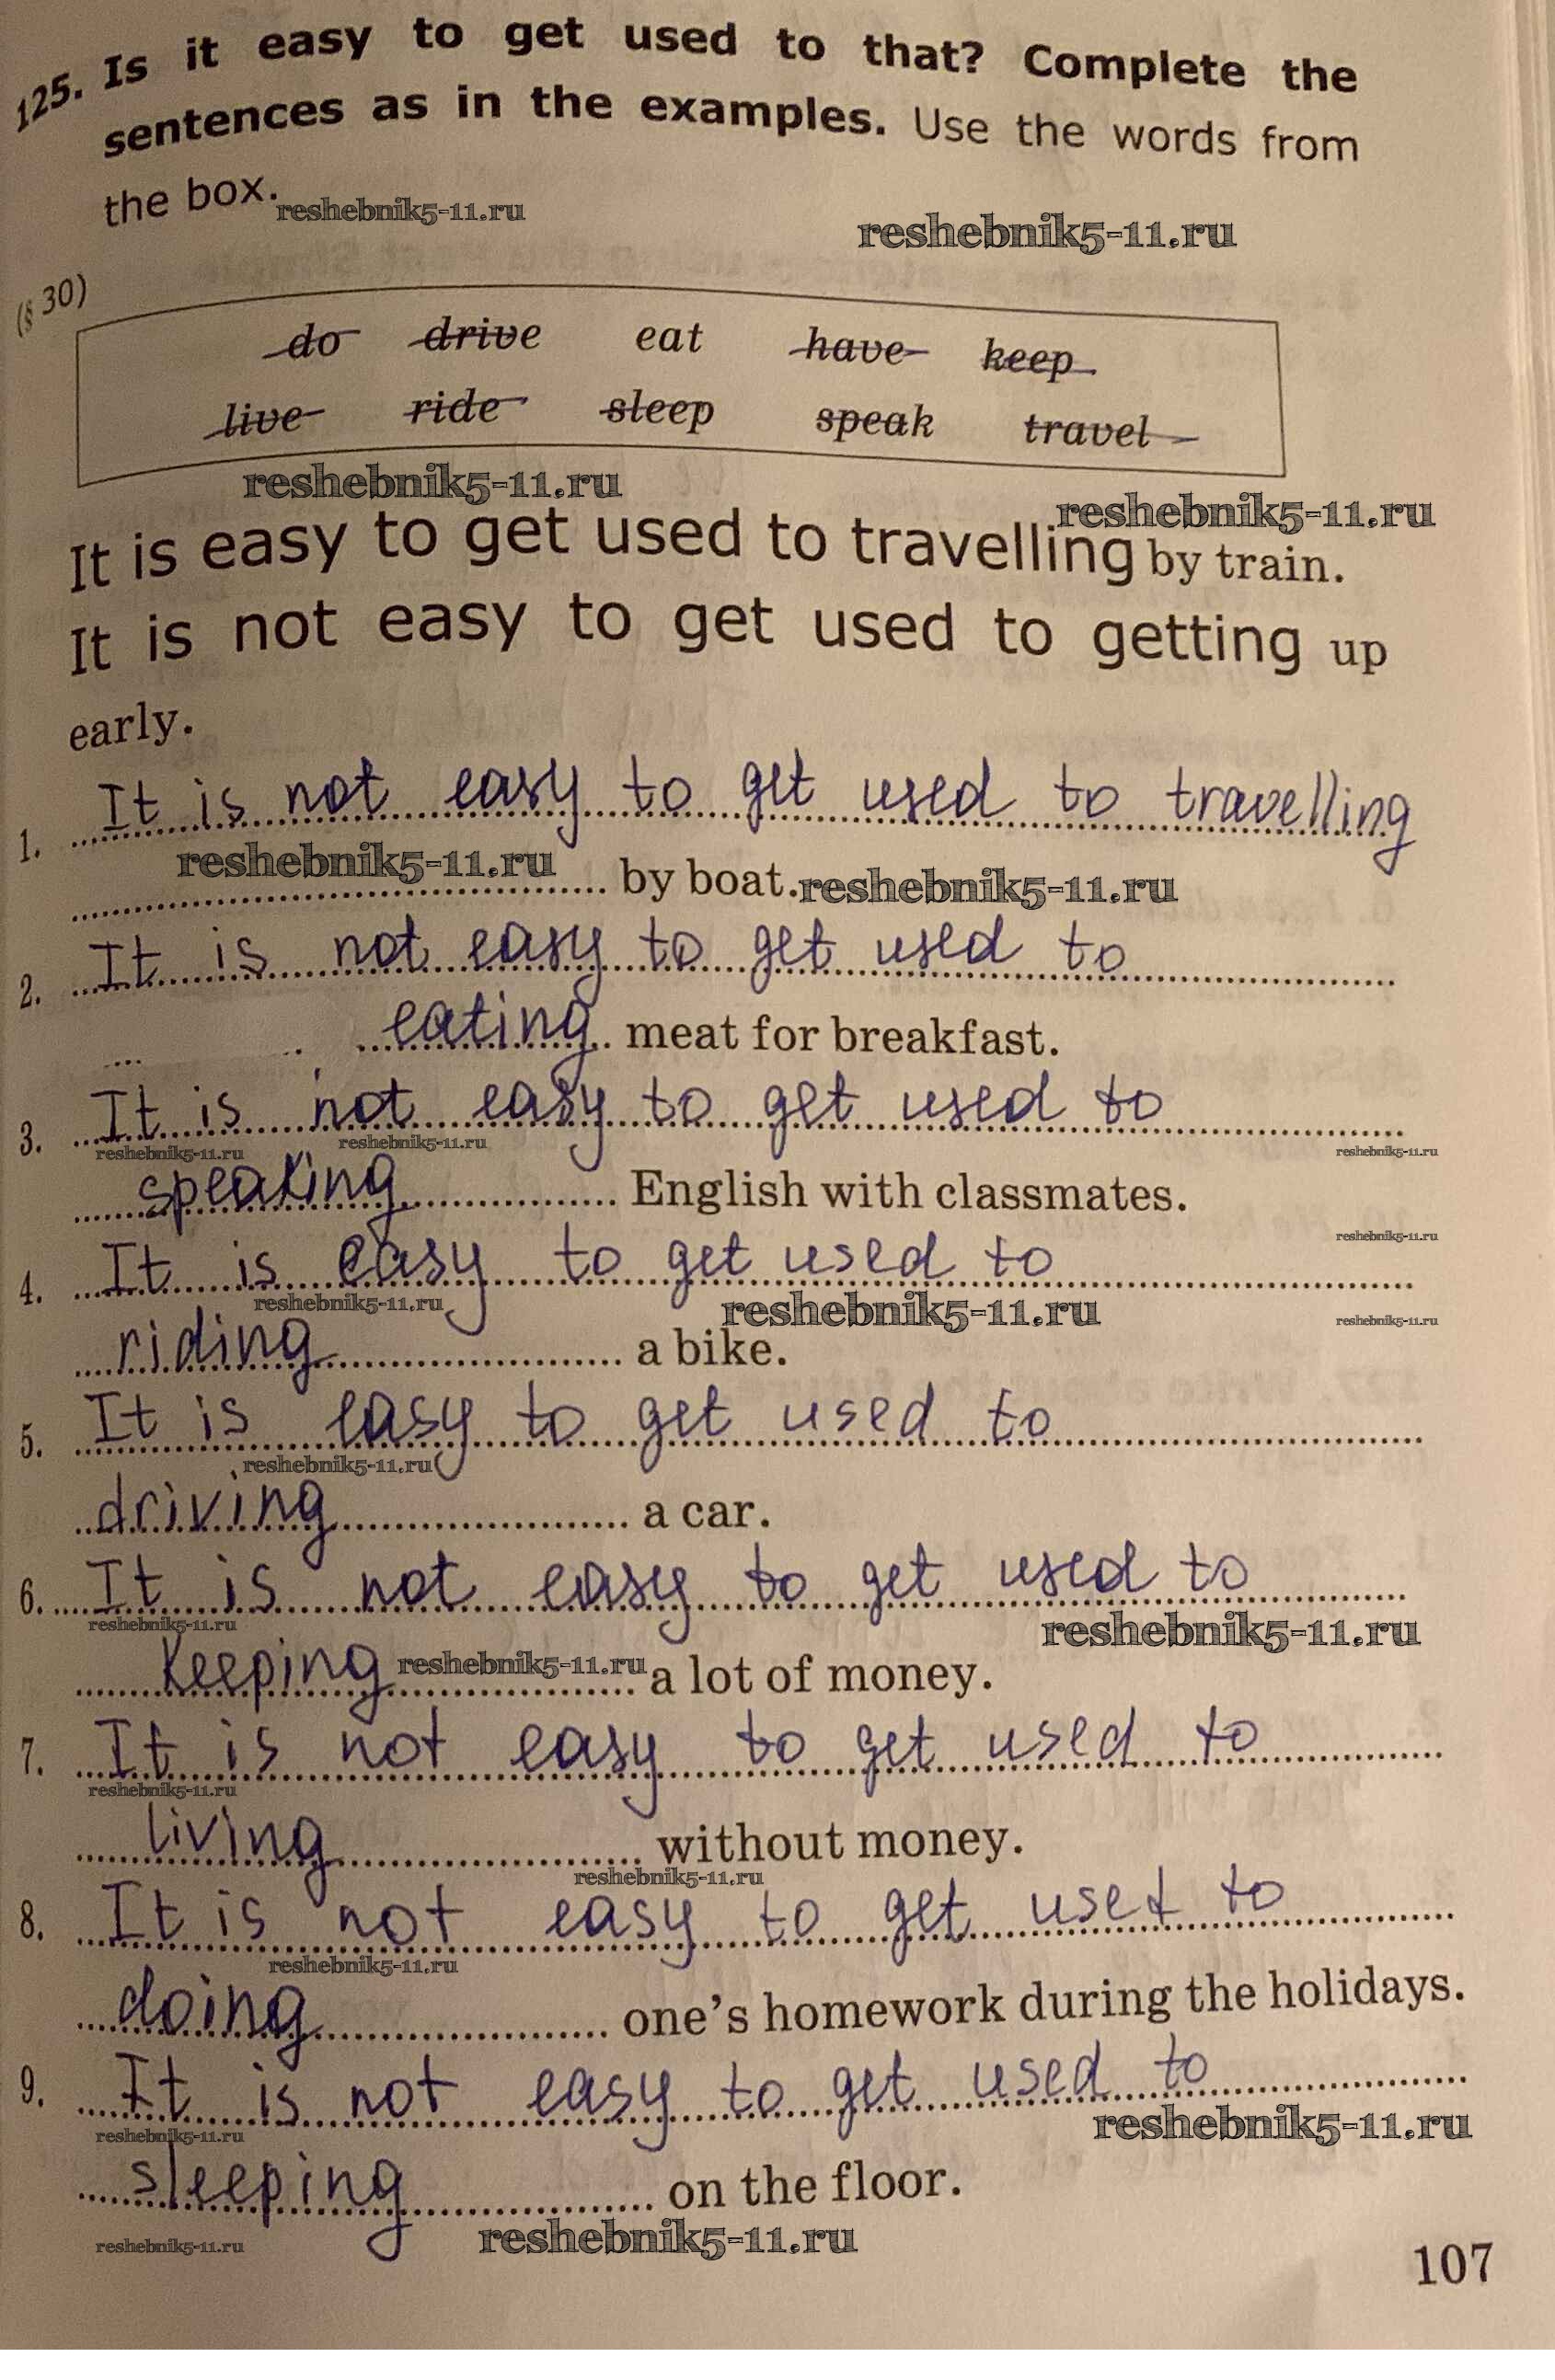 125. Is it easy to get used to that? Complete the
sentences as in the examples. Use the words from
the box.
reshebnik5-11.ru
reshebnik5-11.ru
(§ 30)
do drive eat have keep
live ride sleep speak travel
reshebnik5-11.ru
reshebnik5-11.ru
It is easy to get used to travelling by train.
It is not easy to get used to getting up
early.
1. It is not easy to get used to travelling
reshebnik5-11.ru by boat. reshebnik5-11.ru
2. It is not easy to get used to
eating meat for breakfast.
3. It is not easy to get used to
reshebnik5-11.ru reshebnik5-11.ru reshebnik5-11.ru
speaking English with classmates.
reshebnik5-11.ru
4. It is easy to get used to
reshebnik5-11.ru reshebnik5-11.ru reshebnik5-11.ru
riding a bike.
5. It is easy to get used to
reshebnik5-11.ru
driving a car.
6. It is not easy to get used to
reshebnik5-11.ru reshebnik5-11.ru
keeping reshebnik5-11.ru a lot of money.
7. It is not easy to get used to
reshebnik5-11.ru
living without money.
reshebnik5-11.ru
8. It is not easy to get used to
reshebnik5-11.ru
doing one's homework during the holidays.
9. It is not easy to get used to
reshebnik5-11.ru reshebnik5-11.ru
sleeping on the floor.
reshebnik5-11.ru reshebnik5-11.ru
107